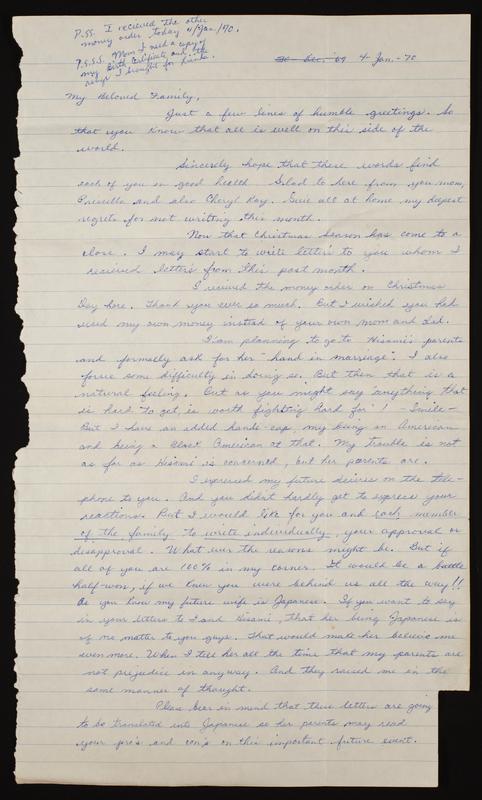 P.SS. I recieved the other
money order today 4/Jan./70.
P.S.S.S. Mom I need a copy of
my Birth Certificate and the
I brought for
30 Dec. '69 4 Jan. - 70
My Beloved Family,
Just a few lines of humble greetings. So
that you know that all is well on this side of the
world.
Sincerely hope that these words find
each of you in good health. Glad to here from you mom,
Priscilla and also Cheryl Kay. Give all at home my deepest
regrets for not writting this month.
Now that Christmas Season has come to a
close. I may start to write letters to you whom I
recieved letters from this past month.
I recieved the money order on Christmas
Day here. Thank you ever so much. But I wished you had
used my own money instead of your own mom and dad.
I'am planning to go to Hisami's parents
and formally ask for her "hand in marriage". I also
forsee some difficulty in doing so. But then that is a
natural feeling. But as you might say "anything that
is hard to get is worth fighting hard for"! - Smile -
But I have an added handi-cap, my being an American
and being a Black American at that. My trouble is not
as far as Hisami is concerned, but her parents are.
I expressed my future desires on the tele-
phone to you. And you didn't hardly get to express your
reactions. But I would like for you and each member
of the family to write individually, your approval or
disapproval. What ever the reasons might be. But if
all of you are 100% in my corner. It would be a battle
half-won, if we knew you were behind us all the way!!
As you know my future wife is Japanese. If you want to say
in your letters to I and Hisami, that her being Japanese is
of no matter to you guys. That would make her believe me
even more. When I tell her all the time that my parents are
not prejudice in anyway. And they raised me in the
same manner of thought.
Pleas bear in mind that these letters are going
to be translated into Japanese so her parents may read
your pro's and con's on this important future event.